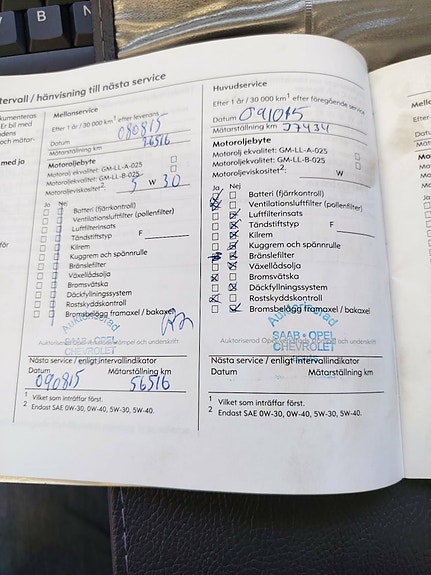 V B N
tervall / hänvisning till nästa service
Mellanservice
Efter 1 år / 30 000 km¹ efter leverans
Datum 080815
Mätarställning km 26516
Motoroljebyte
Motorolj ekvalitet: GM-LL-A-025
Motoroljekvalitet: GM-LL-B-025
Motoroljeviskositet²: 5 W 30
Ja Nej
Batteri (fjärrkontroll)
Ventilationsluftfilter (pollenfilter)
Luftfilterinsats
Tändstiftstyp F
Kilrem
Kuggrem och spännrulle
Bränslefilter
Växellådsolja
Bromsvätska
Däckfyllningssystem
Rostskyddskontroll
Bromsbelägg framaxel / bakaxel
Auktoriserad
SAAB • OPEL
CHEVROLET
Nästa service / enligt intervallindikator
Datum Mätarställning km
090815 56516
1 Vilket som inträffar först.
2 Endast SAE 0W-30, 0W-40, 5W-30, 5W-40.
Huvudservice
Efter 1 år / 30 000 km¹ efter föregående service
Datum 091015
Mätarställning km 37434
Motoroljebyte
Motorolj ekvalitet: GM-LL-A-025
Motoroljekvalitet: GM-LL-B-025
Motoroljeviskositet²: W
Ja Nej
Batteri (fjärrkontroll)
Ventilationsluftfilter (pollenfilter)
Luftfilterinsats
Tändstiftstyp F
Kilrem
Kuggrem och spännrulle
Bränslefilter
Växellådsolja
Bromsvätska
Däckfyllningssystem
Rostskyddskontroll
Bromsbelägg framaxel / bakaxel
Auktoriserad
SAAB • OPEL
CHEVROLET
Nästa service / enligt intervallindikator
Datum Mätarställning km
1 Vilket som inträffar först.
2 Endast SAE 0W-30, 0W-40, 5W-30, 5W-40.